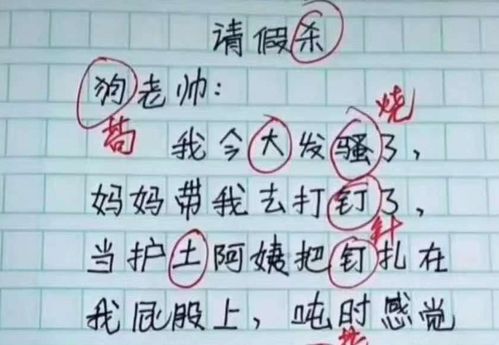 请假杀
狗老帅：
烧
苟
我今大发骚了，
妈妈带我去打钉了，
针
当护土阿姨把钉扎在
我屁股上，吨时感觉